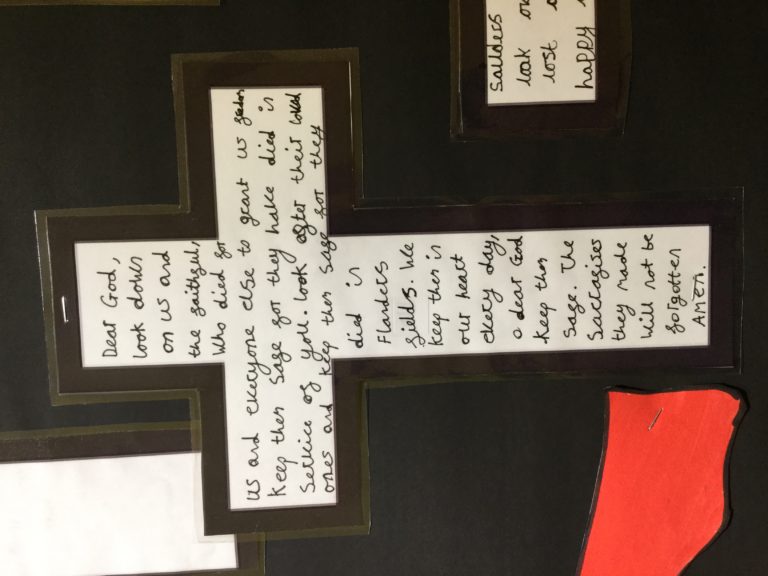 Dear God,
look down
on us and
the faithful,
Who died for
us and everyone else to grant us
Keep them safe for they have died in
Service of you. look after their loved
ones and keep them safe for they
died in
Flanders
fields. We
keep them in
our heart
every day,
o dear God
keep them
safe. The
Sacrafises
they made
will not be
forgotten
AMEN.
look
lost
happy